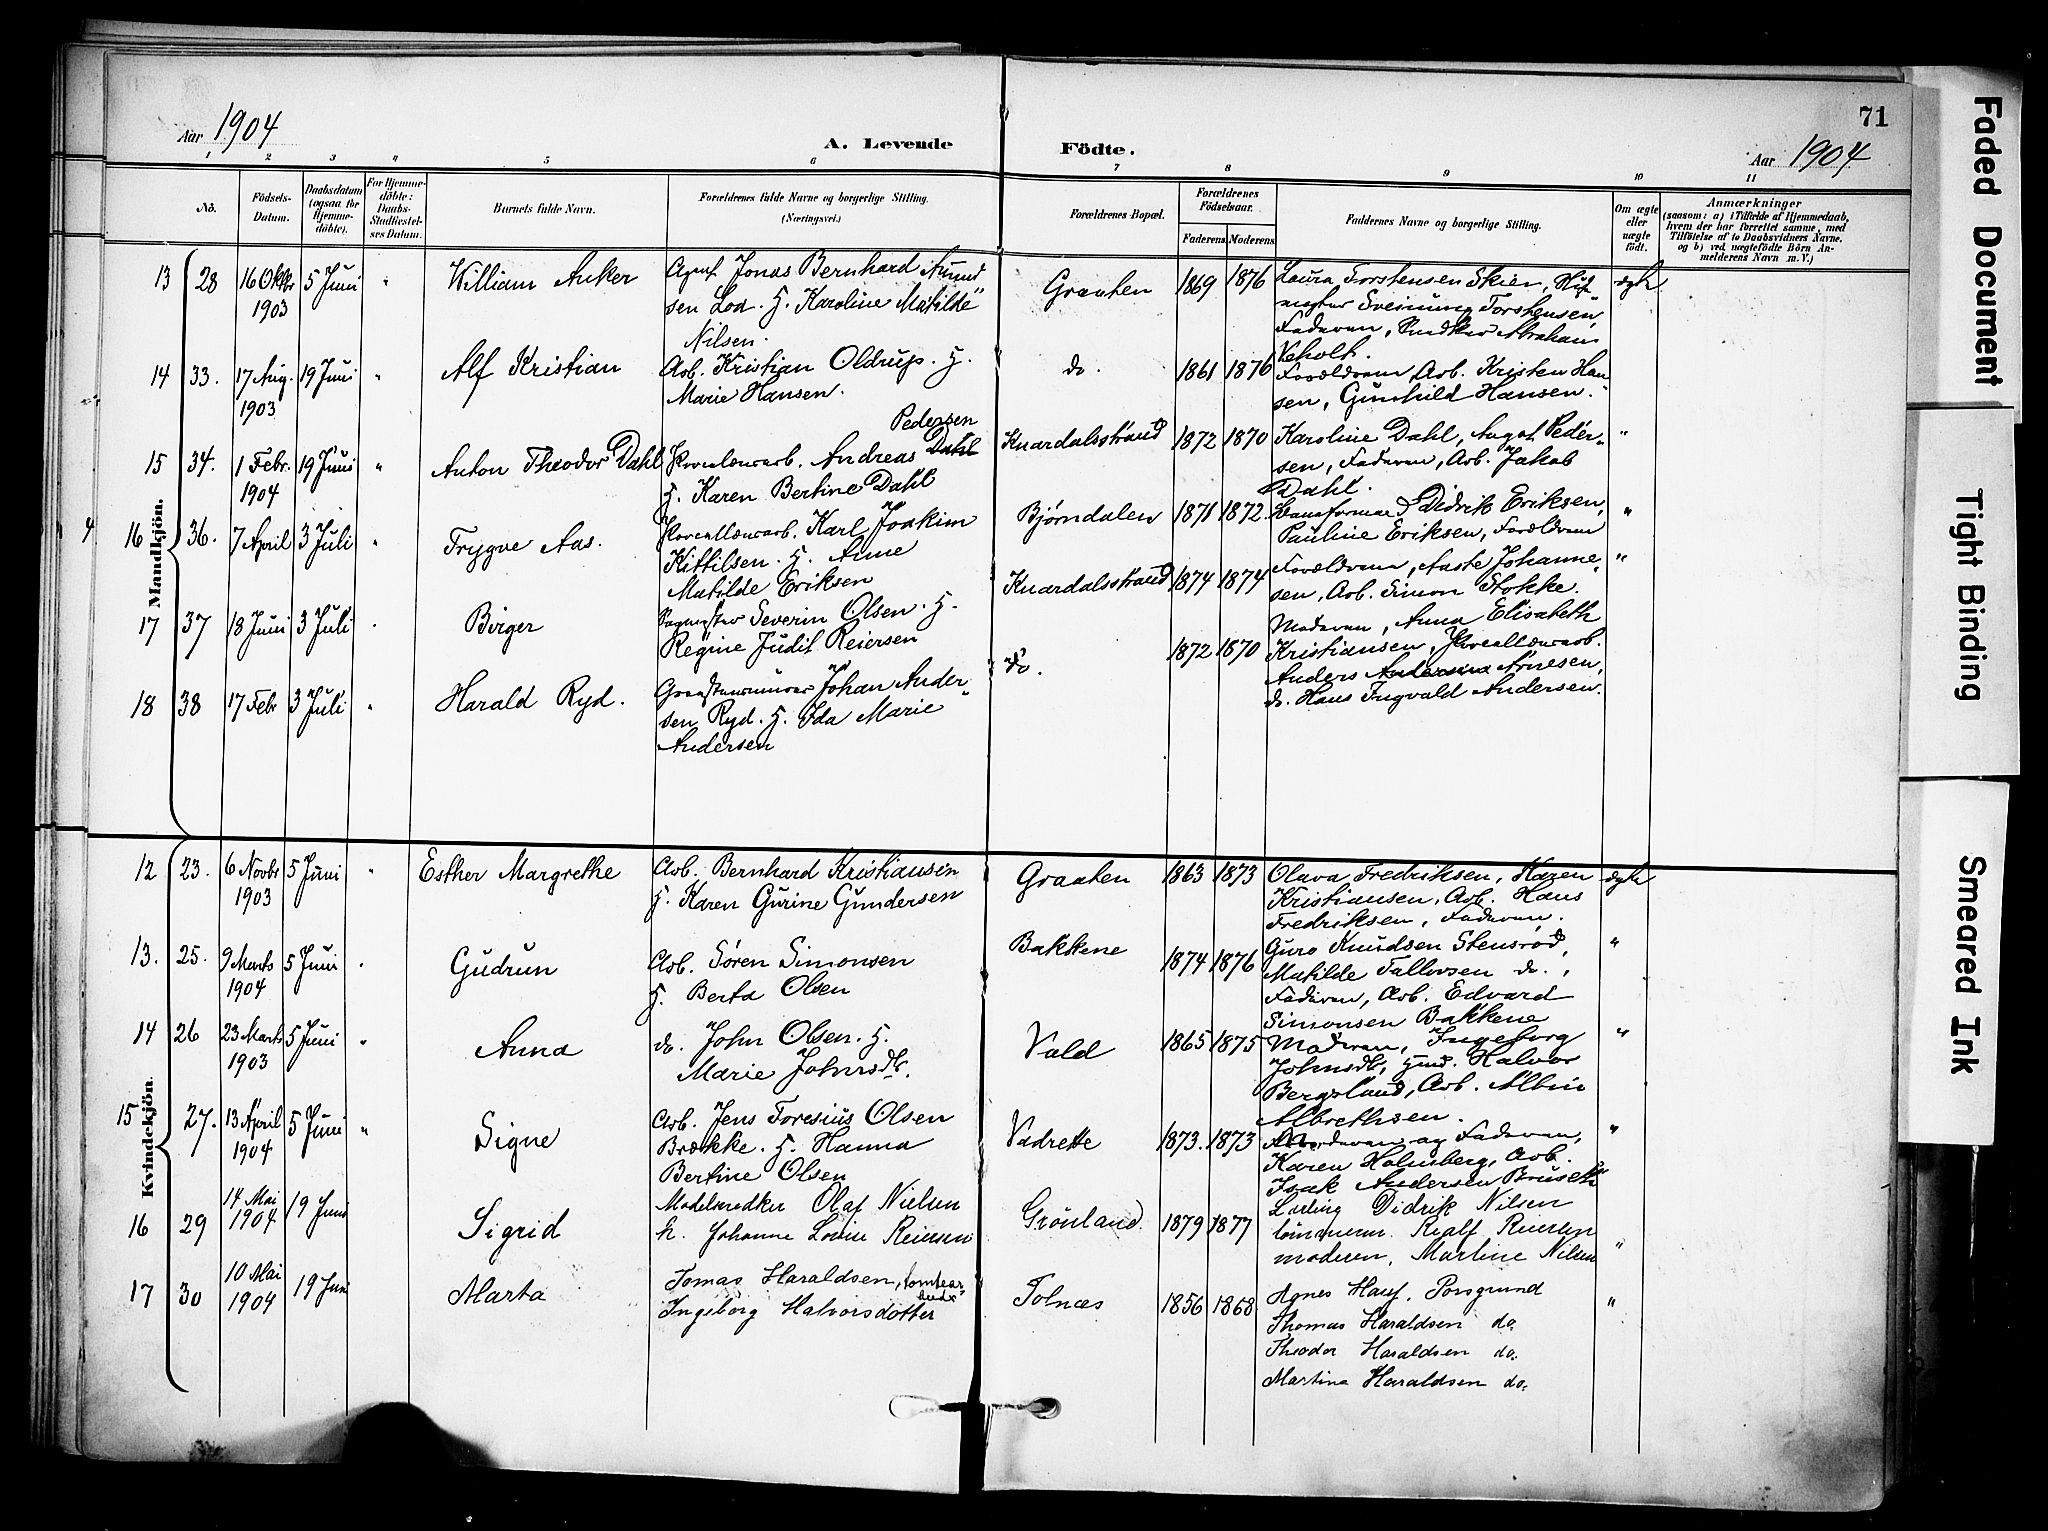 71
Aar 1904
A. Levende Födte.
Aar 1904
1 2 3 4 5 6 7 8 9 10 11
No.
Födsels-
Datum.
Daabsdatum
(ogsaa for
Hjemme-
döbte).
For Hjemme-
döbte:
Daabs-
Stadfæstel-
ses Datum.
Barnets fulde Navn.
Forældrenes fulde Navne og borgerlige Stilling.
(Næringsvei.)
Forældrenes Bopæl.
Forældrenes
Födselsaar.
Faderens Moderens
Faddernes Navne og borgerlige Stilling.
Om ægte
eller
uægte
födt.
Anmærkninger
(saasom: a) i Tilfælde af Hjemmedaab,
hvem der har forrettet samme, med
Tilföielse af to Daabsvidners Navne,
og b) ved uægtefödte Börn An-
melderens Navn m. V.)
Mandkjön.
13 28 16 Oktbr 1903 5 Juni " William Anker
Agent Jonas Bernhard Amund
sen Loa. H. Karoline Matilde
Nilsen.
Graaten 1869 1876
Laura Torstensen Skien,
Sveinung Torstensen,
Faderen, Abraham
Veholt.
ægte
14 33. 17 Aug. 1903 19 Juni " Alf Kristian
Arb. Kristian Oldrup. H.
Marie Hansen.
do. 1861 1876
Forældrene, Arb. Kristen Han
sen, Gunhild Hansen.
15 34. 1 Febr. 1904 19 Juni " Anton Theodor Dahl
Pedersen
Porcelænsarb. Andreas Dahl
H. Karen Bertine Dahl
Knardalsstrand 1872 1870
Karoline Dahl, August Peder-
sen, Faderen, Arb. Jakob
Dahl.
"
4
16 36. 7 April 3 Juli " Trygve Aas.
Porcellænsarb. Karl Joakim
Kittilsen. H. Anne
Matilde Eriksen
Bjørndalen 1871 1872.
Didrik Eriksen,
Pauline Eriksen, Forældrene
"
17 37 18 Juni 3 Juli " Birger
Severin Olsen. H.
Regine Judit Reiersen
Knardalsstrand 1874 1874
Forældrene, Aaste Johanne-
sen, Arb. Simon Stokke.
"
18 38 17 Febr 3 Juli " Harald Ryd.
Johan Ander-
sen Ryd. H. Ida Marie
Andersen
do. 1872 1870
Moderen, Anna Elisabeth
Kristiansen, Porcellænsarb.
Anders Andersen Arnesen,
do. Hans Ingvald Andersen.
Kvindekjön.
12 23. 6 Novbr 1903 5 Juni " Esther Margrethe
Arb. Bernhard Kristiansen
H. Karen Gurine Gundersen
Graaten 1863 1873
Olava Fredriksen, Karen
Kristiansen, Arb. Hans
Fredriksen, Faderen.
ægte
13. 25. 9 Marts 1904 5 Juni " Gudrun
Arb. Søren Simonsen
H. Berta Olsen
Bakkene 1874 1876
Guro Knudsen Stensrød,
Matilde Tallevsen do.,
Faderen, Arb. Edvard
Simonsen Bakkene
"
14 26 23 Marts 1903 5 Juni " Anna
do. John Olsen. H.
Marie Johnsdt.
Vald 1865 1875
Moderen, Ingeborg
Johnsdt, Halvor
Bergsland, Arb. Albin
Albrethsen.
"
15 27. 13 April 1904 5 Juni " Signe
Arb. Jens Toresius Olsen
Brække. H. Hanna
Bertine Olsen
Vadrette 1873. 1873
Moderen og Faderen,
Karen Holmberg, Arb.
Isak Andersen Bruseth
"
16 29 14 Mai 1904 19 Juni Sigrid
Modelsnedker Olaf Nielsen
h. Johanne Lovise Reiersen
Grönland. 1879 1877
Didrik Nilsen
tömmerm. Realf Reiersen
moderen, Martine Nilsen
"
17 30 10 Mai 1904 19 Juni Marta
Tomas Haraldsen, tomtearbeider
Ingeborg Halvorsdotter
Tolnæs 1856 1868
Agnes Hauf, Porsgrund
Thomas Haraldsen do.
Theodor Haraldsen do.
Martina Haraldsen do.
"
Faded Document
Tight Binding
Smeared Ink